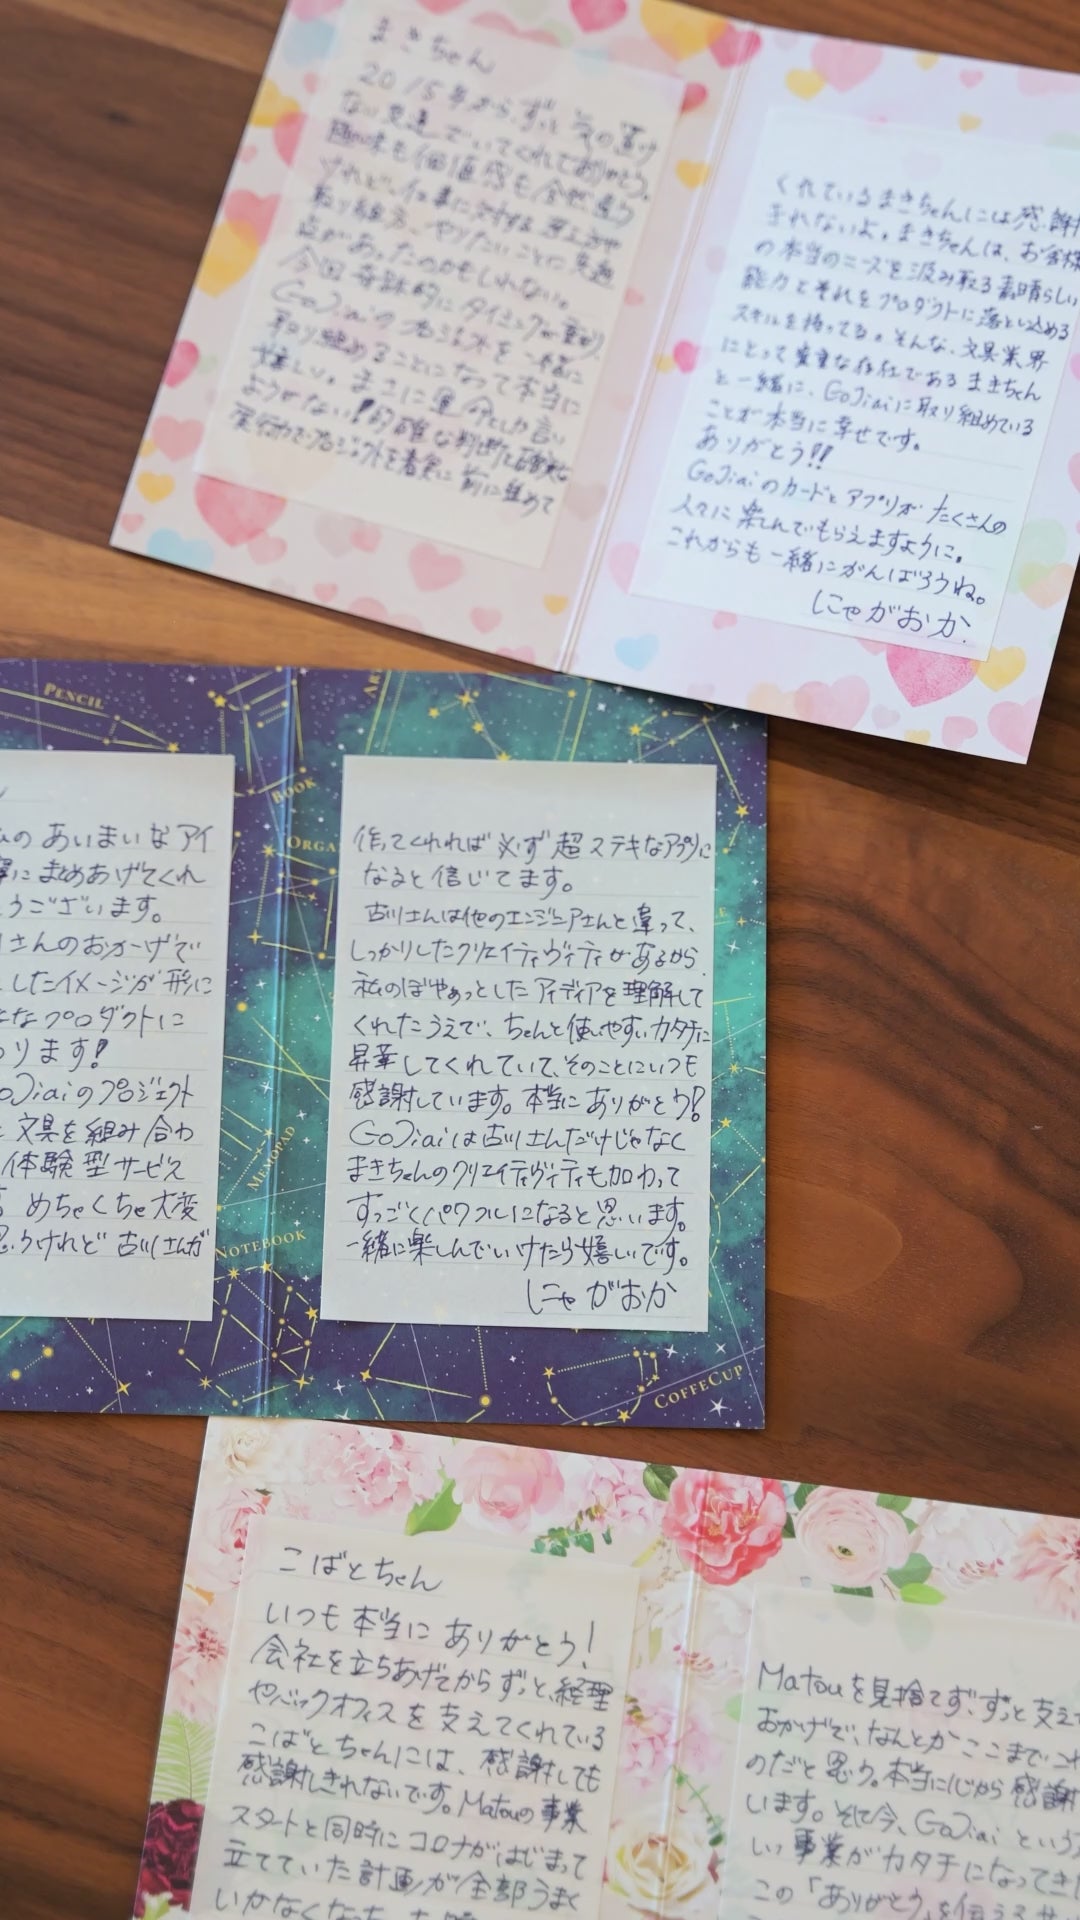 まきちゃん
2015年から、ずっと気の置け
ない友達でいてくれてありがとう。
趣味も価値感も全然違う
けれど、仕事に対する考え方や
取り組み方、やりたいことに共通
点があったのかもしれない。
今回奇跡的にタイミングが重なり、
GoJiaiのプロジェクトを一緒に
取り組めることになって本当に
嬉しい。まさに運命としか言い
ようがない!的確な判断と確実な
実行力でプロジェクトを着実に前に進めて
くれているまきちゃんには感謝
きれないよ。まきちゃんは、お客様
の本当のニーズを汲み取る素晴らしい
能力とそれをプロダクトに落とし込める
スキルを持ってる。そんな、文具業界
にとって貴重な存在であるまきちゃん
と一緒に、GoJiaiに取り組めている
ことが本当に幸せです。
ありがとう!!
GoJiaiのカードとアプリが たくさんの
人々に楽しんでもらえますように。
これからも一緒にがんばろうね。
にゃがおか
PENCIL
BOOK
MEMOPAD
NOTEBOOK
COFFECUP
のあいまいなアイ
にまとめあげてくれ
うございます。
さんのおかげで
したイメージが形に
なプロダクトに
ります!
oJiaiのプロジェクト
文具を組み合わ
体験型サービス
めちゃくちゃ大変
思うけれど 古川さんが
作ってくれれば必ず超ステキなアプリに
なると信じてます。
古川さんは他のエンジニアさんと違って、
しっかりしたクリエイティヴィティがあるから、
私のぼやぁっとしたアイディアを理解して
くれたうえで、ちゃんと使いやすいカタチに
昇華してくれていて、そのことにいつも
感謝しています。本当にありがとう!
GoJiaiは古川さんだけじゃなく
まきちゃんのクリエイティヴィティも加わって
すっごくパワフルになると思います。
一緒に楽しんでいけたら嬉しいです。
にゃがおか
こばとちゃん
いつも本当にありがとう!
会社を立ちあげてからずっと、経理
やバックオフィスを支えてくれている
こばとちゃんには、感謝しても
感謝しきれないです。Matouの事業
スタートと同時にコロナがはじまって
立てていた計画が全部うまく
いかなくなっ
Matouを見捨てず、ずっと支え
おかげで、なんとかここまでこれ
のだと思う。本当に心から感謝
います。そして今、GoJiaiという
しい事業がカタチになってき
この「ありがとう」を伝える